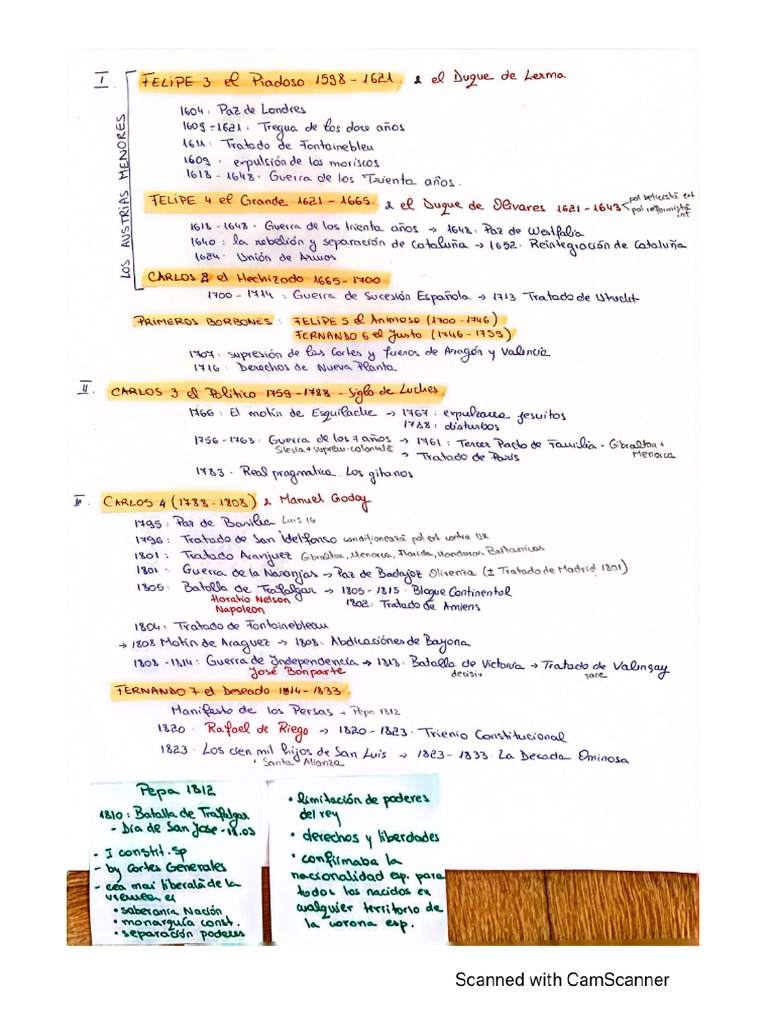 I. FELIPE 3 el Piadoso 1598-1621 & el Duque de Lerma
LOS AUSTRIAS MENORES
1604: Paz de Londres
1609-1621: Tregua de los doce años
1611: Tratado de Fontainebleu
1609. expulsión de los moriscos
1618-1648. Guerra de los Trienta años.
FELIPE 4 el Grande 1621-1665 & el Duque de Olivares 1621-1643 < pol belicista ext
pol reformista int
1618-1648. Guerra de los trienta años → 1648. Paz de Westfalia
1640: la rebelión y separación de Cataluña → 1652. Reintegración de Cataluña
1624. Unión de Armas
CARLOS 2 el Hechizado 1665-1700
1700-1714: Guerra de Sucesión Española → 1713 Tratado de Utrecht
PRIMEROS BORBONES: FELIPE 5 el Animoso (1700-1746)
FERNANDO 6 el Justo (1746-1759)
1707: supresión de las Cortes y fueros de Aragón y Valencia
1716: Derechos de Nueva Planta
II. CARLOS 3 el Politico 1759-1788 - Siglo de Luches.
1766: El motín de Esquilache → 1767. expulzaron jesuitos
1788: disturbos
1756-1763. Guerra de los 7 años → 1761: Tercer Pacto de Familia - Gibraltar + Menorca
Silesia + suprem. colonial → Tratado de París
1783. Real pragmatica. Los gitanos
III. CARLOS 4 (1788-1808) & Manuel Godoy
1795: Paz de Basilea Luis 16
1796: Tratado de San Ildelfonso condicionará pol ext contra UK
1801: Tratado Aranjuez Gibraltar, Menorca, Florida, Honduras Britanicas
1801: Guerra de la Naranjas → Paz de Badajoz Olivenza (± Tratado de Madrid 1801)
1805: Batalla de Trafalgar → 1805-1815. Bloque Continental
Horatio Nelson 1802. Tratado de Amiens
Napoleon
1804: Tratado de Fontainebleau
→ 1808 Motín de Araguez → 1808. Abdicaciónes de Bayona
1808-1814: Guerra de Independencia → 1813. Batalla de Victoria → Tratado de Valinçay
José Bonparte decisiv pace
FERNANDO 7 el Deseado 1814-1833
Manifesto de los Persas → Pepa 1812
1820: Rafael de Riego → 1820-1823. Trienio Constitucional
1823. Los cien mil hijos de San Luis → 1823-1833. La Decada Ominosa
• Santa Alianza
Pepa 1812
1810: Batalla de Trafalgar
- Día de San Jose - 19.03
- I constit. sp
- by Cortes Generales
- cea mai liberală de la
vremea ei
• soberanía Nación
• monarquía const.
• separación poderes
• limitación de poderes
del rey
• derechos y liberdades
• confirmaba la
nacionalidad esp. para
todos los nacidos en
cualquier territorio de
la corona esp.
Scanned with CamScanner